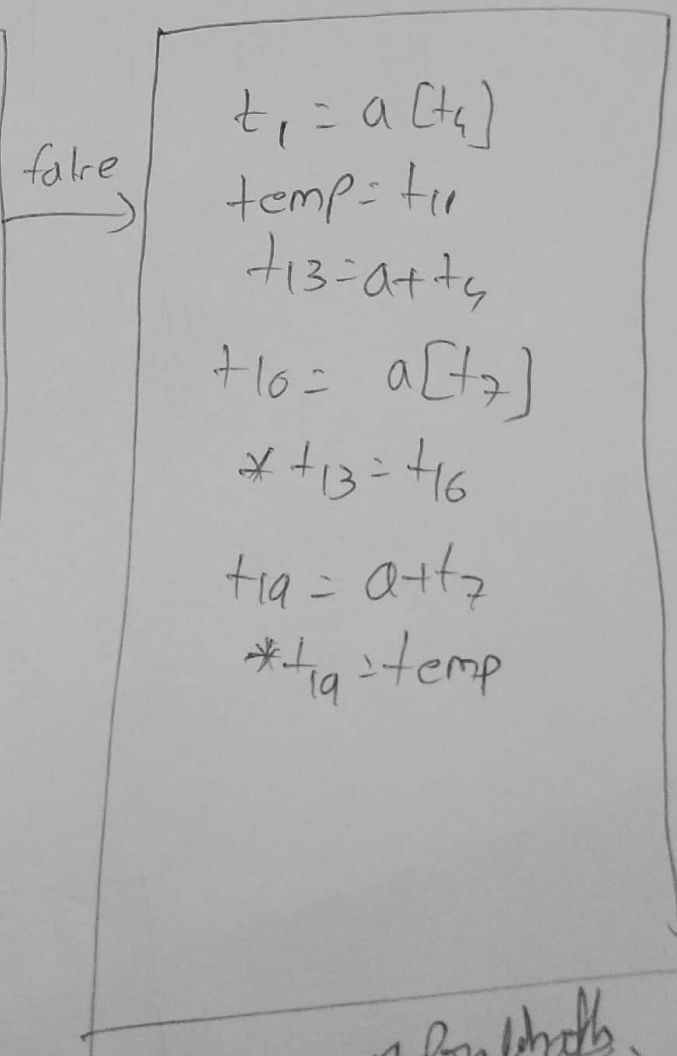 false
t1 = a[t4]
temp = t11
t13 = a + t4
t16 = a[t7]
* t13 = t16
t19 = a + t7
* t19 = temp